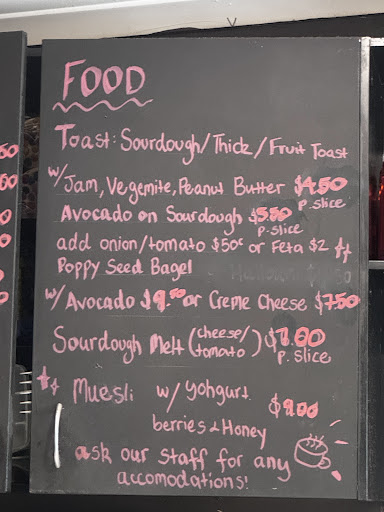 FOOD
Toast: Sourdough/Thick/Fruit Toast
w/Jam, Vegemite, Peanut Butter $4.50
p.slice
Avocado on Sourdough $5.50
p-slice
add onion/tomato $50c or Feta $2
Poppy Seed Bagel
w/Avocado $9.50 or Creme Cheese $7.50
Sourdough Melt (cheese/tomato) $7.00
p. slice
Muesli w/ yohgurt
berries & Honey
$9.00
ask our staff for any
accomodations!